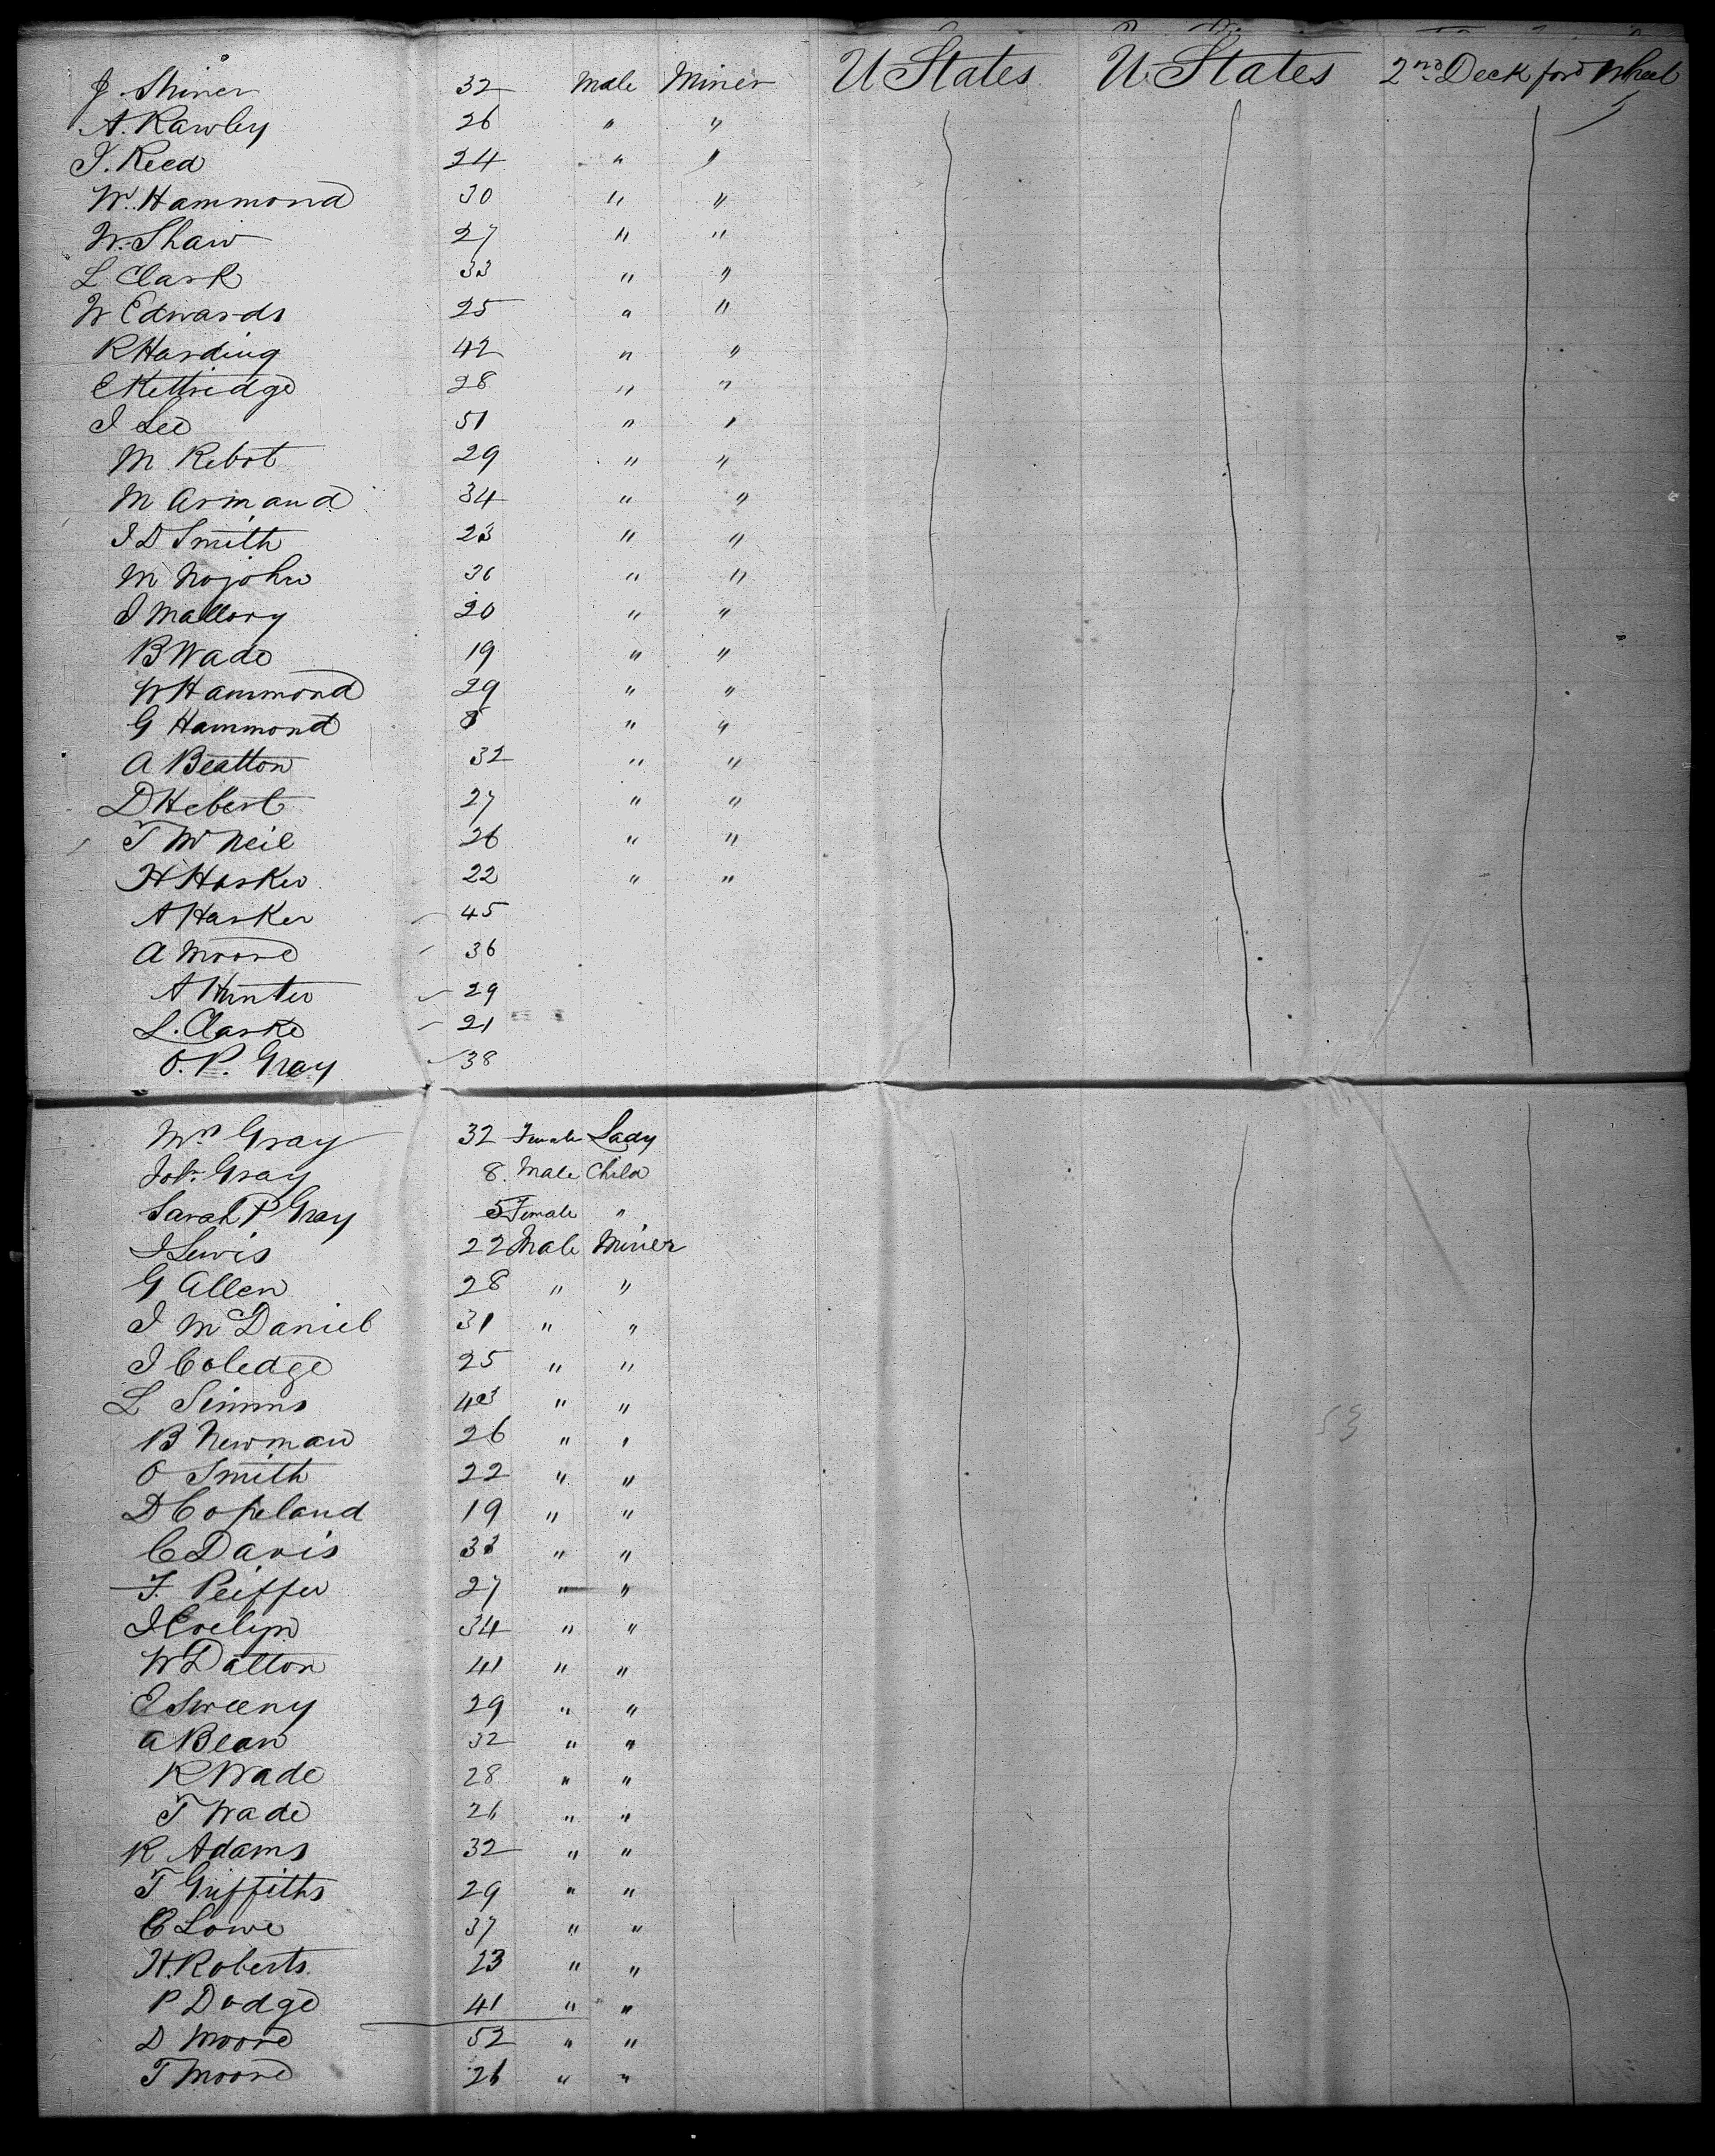 J. Shiner 32 Male Miner U States U. States 2nd Deck ford Wheel
A. Rawley 26 " "
J. Reed 24 " "
W. Hammond 30 " "
W. Shaw 27 " "
L Clark 33 " "
W Edwards 25 " "
R Harding 42 " "
E Kettridge 28 " "
J Lee 51 " "
M Rebot 29 " "
M Armand 34 " "
J D Smith 23 " "
M 36 " "
J Mallory 20 " "
B Wade 19 " "
W Hammond 29 " "
G Hammond 8 " "
A Beatton 32 " "
D Hebert 27 " "
T McNeil 26 " "
H Harker 22 " "
A Harker 45
A Moore 36
A Hunter 29
L. Clarke 21
O. P. Gray 38
Mrs Gray 32 Female Lady
Gray 8. Male Child
Sarah P Gray 5 Female "
J Lewis 22 Male Miner
G Allen 28 " "
J McDaniel 31 " "
J Coledge 25 " "
L Simms 43 " "
B Newman 26 " "
O Smith 22 " "
D Copeland 19 " "
C Davis 33 " "
F. Peiffer 27 " "
J Evelyn 34 " "
W Dalton 41 " "
E Sweeny 29 " "
A Bean 32 " "
R Wade 28 " "
T Wade 26 " "
R Adams 32 " "
T Griffiths 29 " "
C Lowe 37 " "
H. Roberts 23 " "
P Dodge 41 " "
D Moore 52 " "
T Moore 26 " "